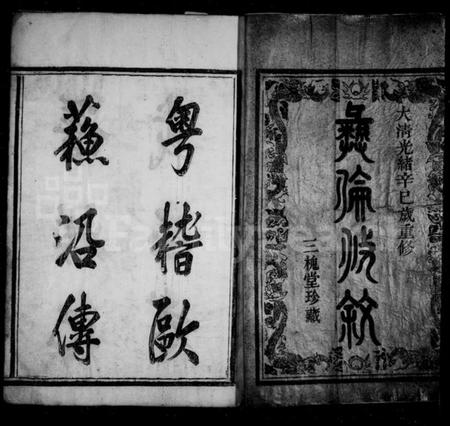 大清光緒辛巳歲重修
彝倫攸敘
三槐堂珍藏
粵稽歐
蘇沿傳